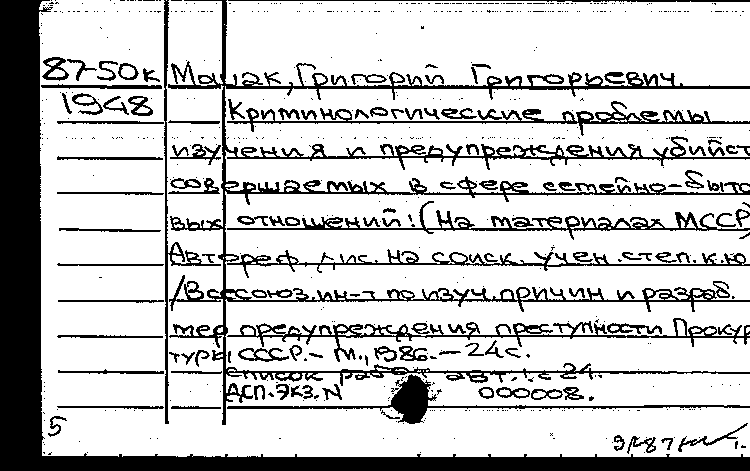 87-50к Мацак, Григорий Григорьевич.
1948 Криминологические проблемы
изучения и предупреждения убийст
совершаемых в сфере семейно-быто
вых отношений: (На материалах МССР)
Автореф. дис. на соиск. учен. степ. к.ю
/Всесоюз. ин-т по изуч. причин и разраб.
мер предупреждения преступности Прокур
туры СССР. - М., 1986. - 24 с.
Список работ авт.: с 24.
ДСП. Экз. N 000008.
5